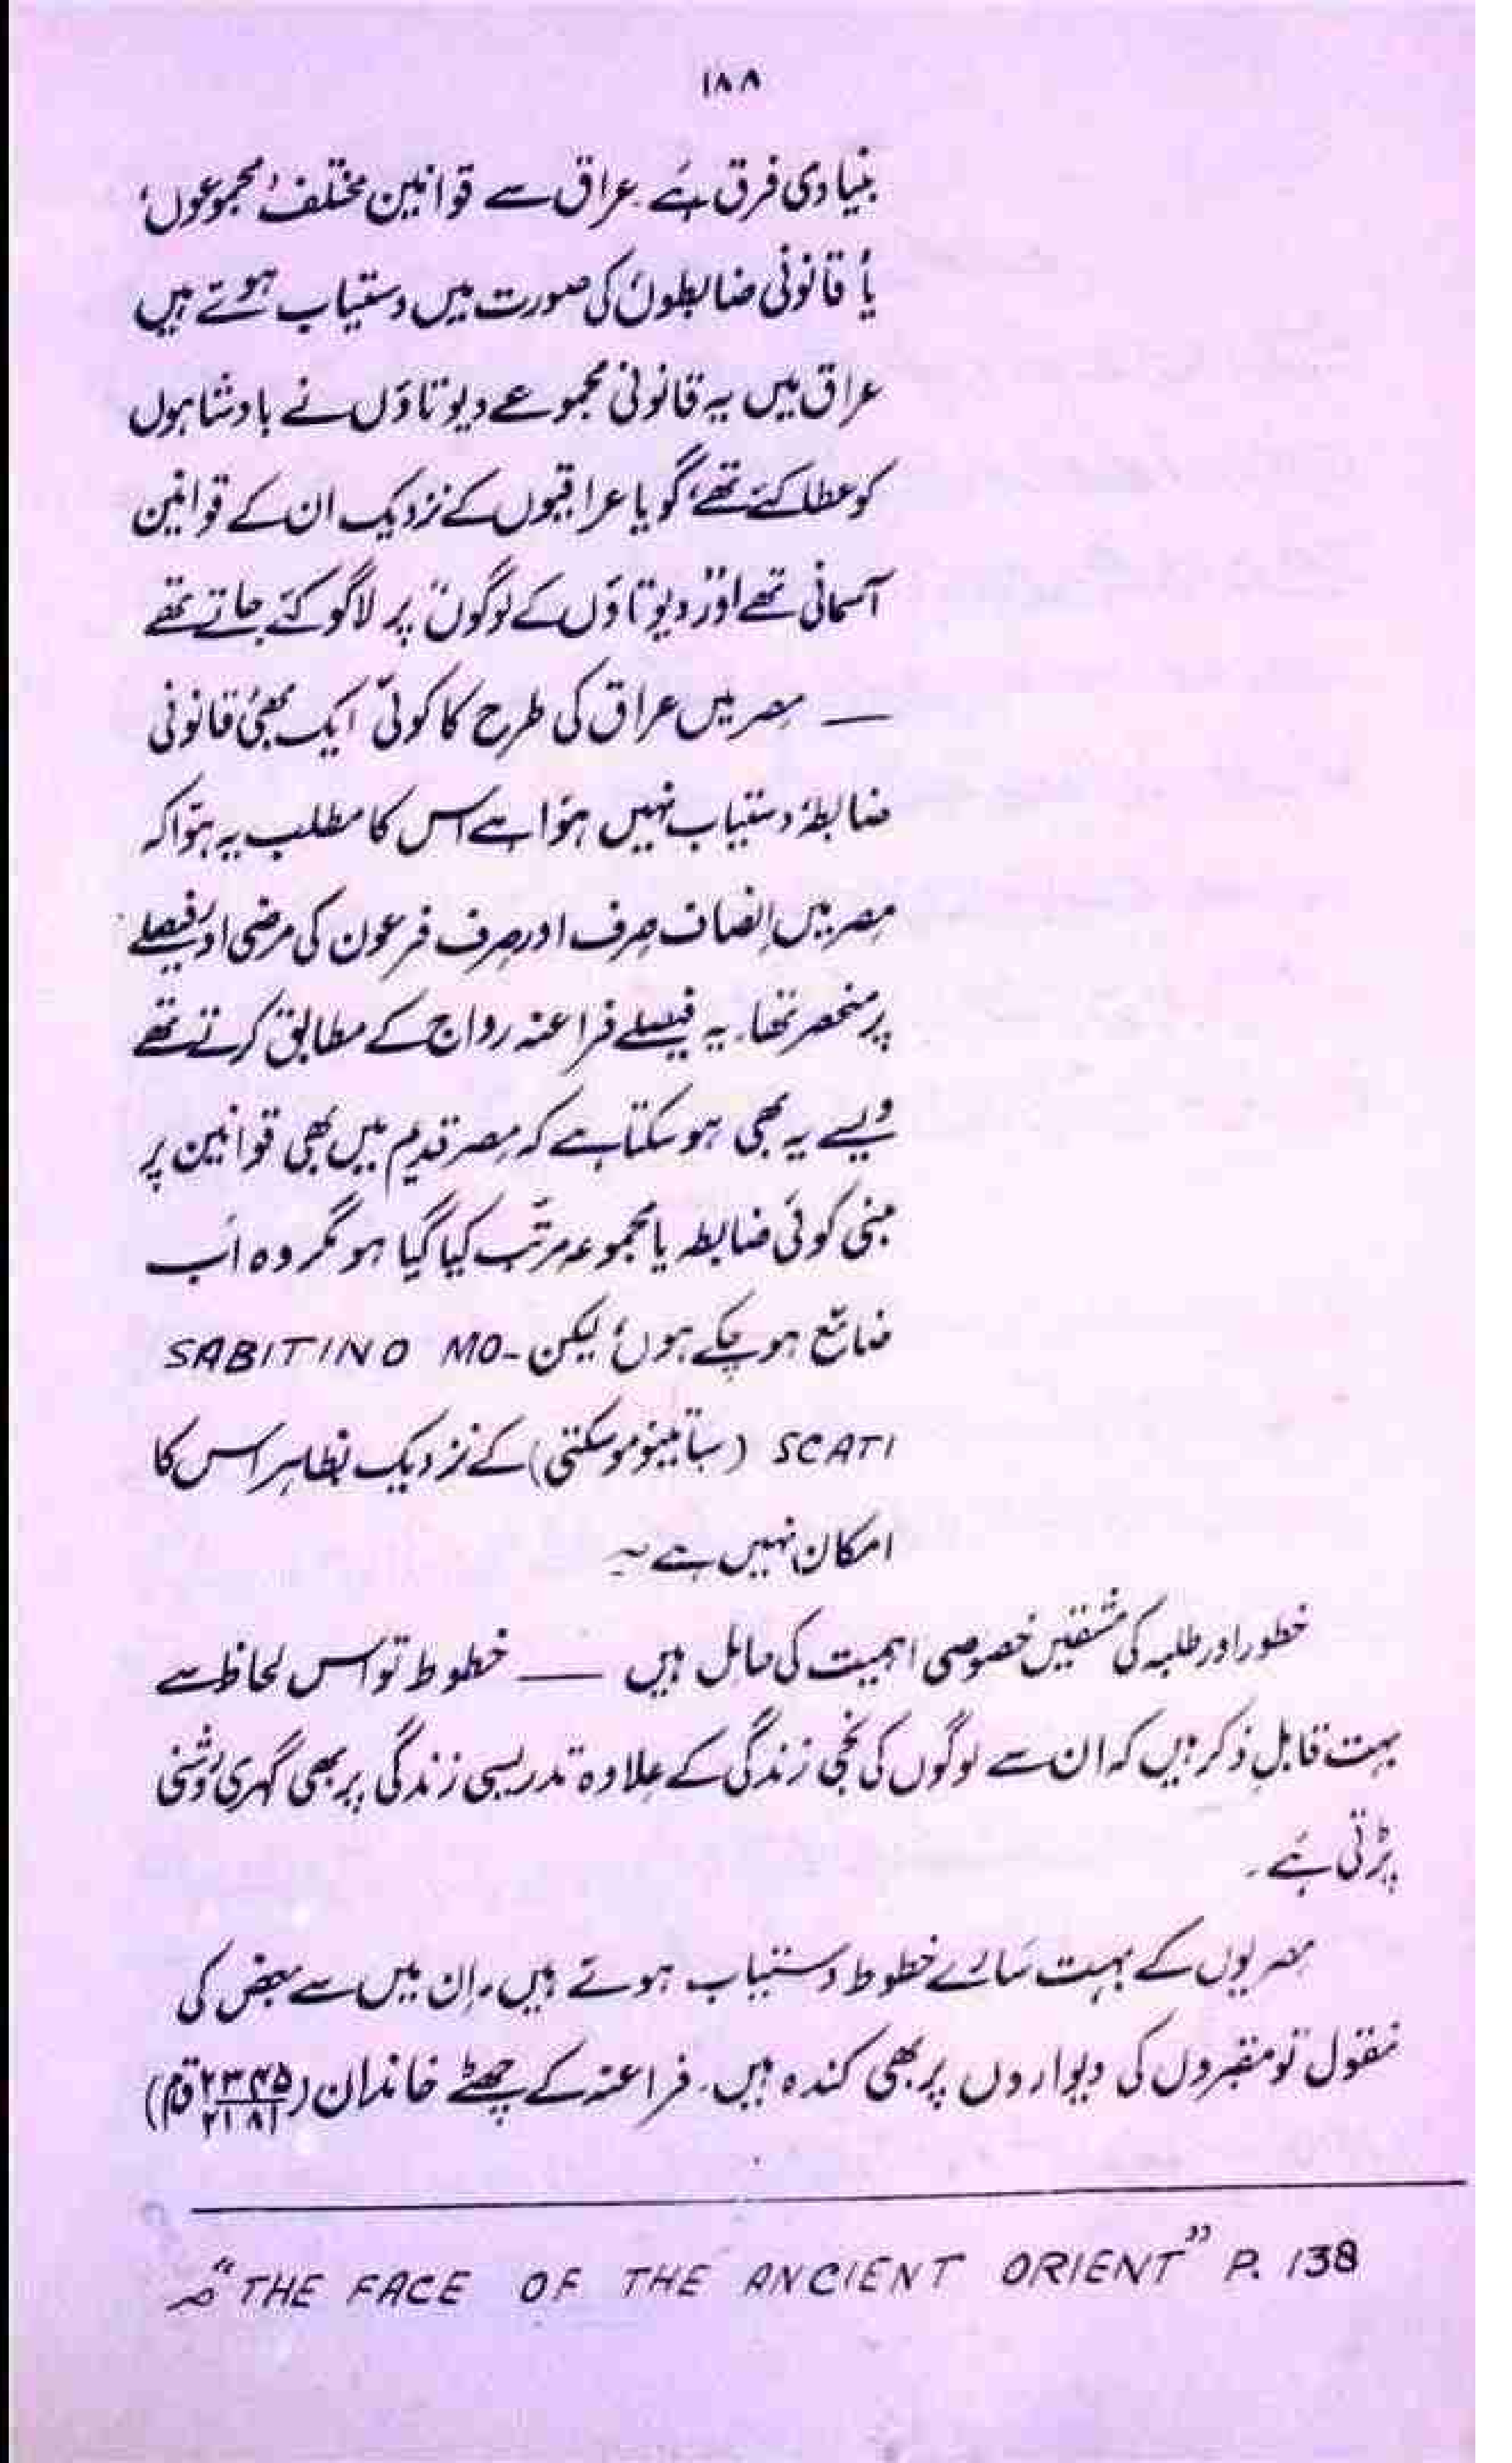 ۱۸۸
بنیادی فرق ہے۔ عراق سے قوانین مختلف 'مجموعوں'
یا 'قانونی ضابطوں' کی صورت میں دستیاب ہوئے ہیں
عراق میں یہ قانونی مجموعے دیوتاؤں نے بادشاہوں
کو عطا کئے تھے، گویا عراقیوں کے نزدیک ان کے قوانین
آسمانی تھے اور "دیوتاؤں کے لوگوں" پر لاگو کئے جاتے تھے
— مصر میں عراق کی طرح کا کوئی ایک بھی 'قانونی
ضابطہ' دستیاب نہیں ہوا ہے اس کا مطلب یہ ہوا کہ
مصر میں اِنصاف صِرف اور صِرف فرعون کی مرضی اور فیصلے
پر منحصر تھا۔ یہ فیصلے فراعنہ رواج کے مطابق کرتے تھے
ویسے یہ بھی ہو سکتا ہے کہ مصر قدیم میں بھی قوانین پر
مبنی کوئی ضابطہ یا مجموعہ مرتّب کیا گیا ہو مگر وہ اَب
ضائع ہو چکے ہوں، لیکن SABITINO MO-
SCATI (سباتینو موسکتی) کے نزدیک بظاہر اس کا
امکان نہیں ہے ؎
خطور اور طلبہ کی مشقیں خصوصی اہمیت کی حامل ہیں — خطوط تو اس لحاظ سے
بہت قابلِ ذکر ہیں کہ ان سے لوگوں کی نجی زندگی کے علاوہ تدریسی زندگی پر بھی گہری روشنی
پڑتی ہے۔
مصریوں کے بہت سارے خطوط دستیاب ہوئے ہیں۔ اِن میں سے بعض کی
نقول تو مقبروں کی دیواروں پر بھی کندہ ہیں۔ فراعنہ کے چھٹے خاندان (۲۳۴۵/۲۱۸۱ ق م)
؎ "THE FACE OF THE ANCIENT ORIENT" P. 138